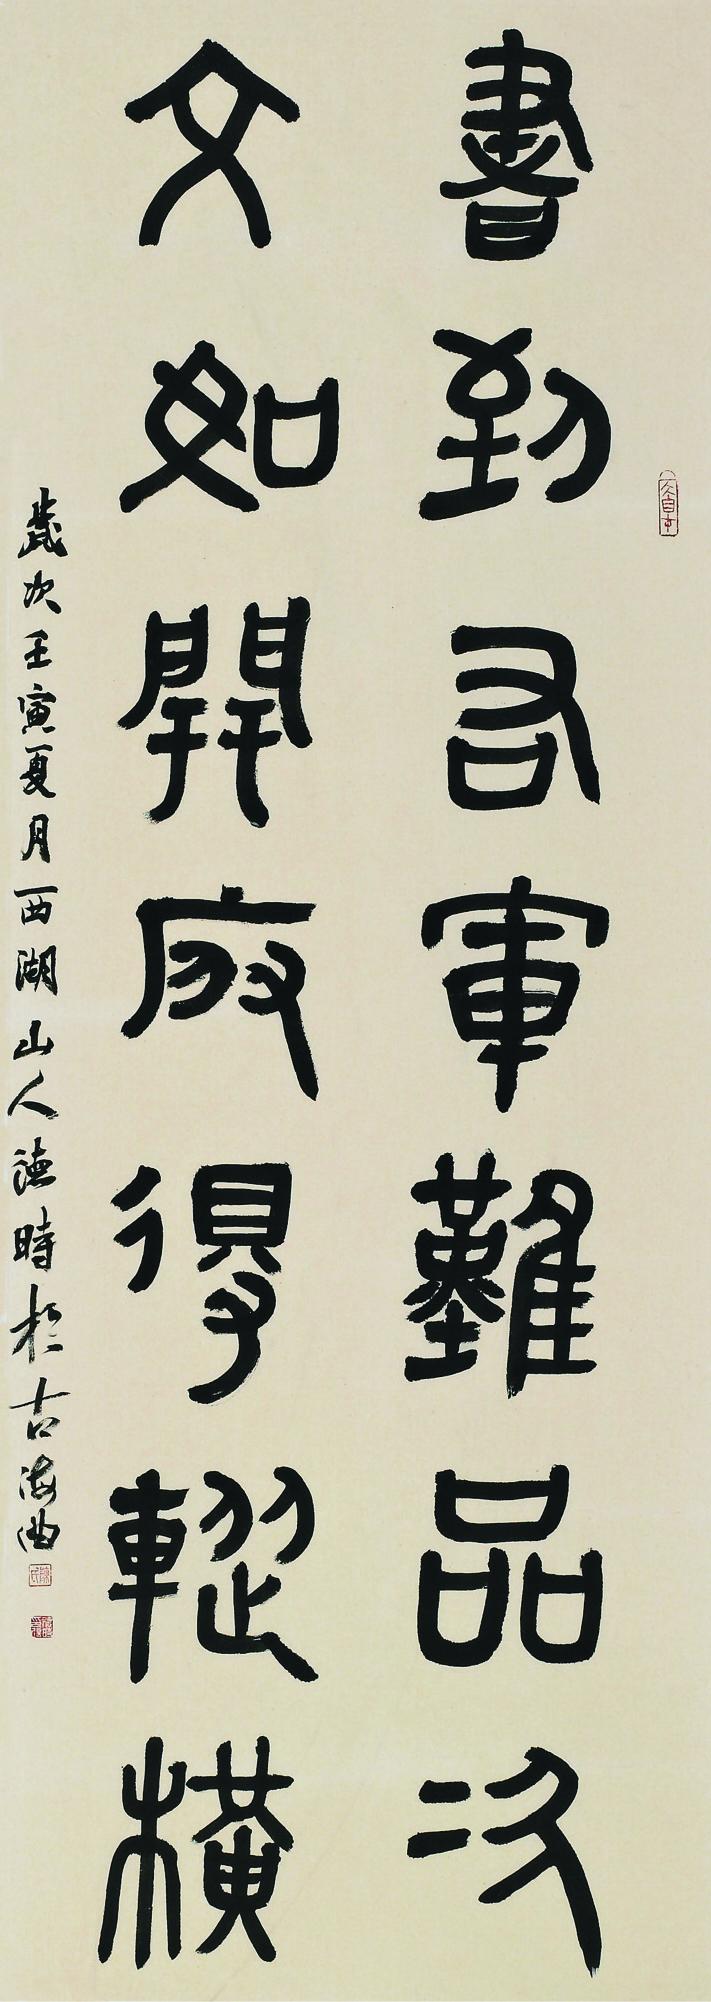 書到右軍難品次
文如開府得縱橫
歲次壬寅夏月西湖山人德時於古海曲